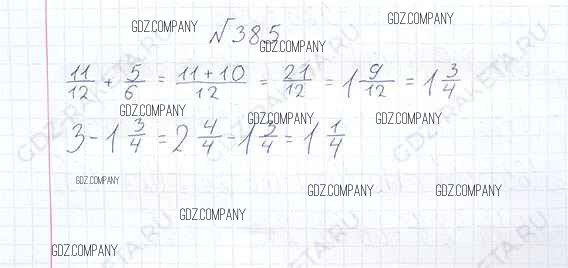 GDZ.COMPANY
№385
GDZ.COMPANY
11/12 + 5/6 = 11+10/12 = 21/12 = 1 9/12 = 1 3/4
GDZ.COMPANY GDZ.COMPANY GDZ.COMPANY
3 - 1 3/4 = 2 4/4 - 1 3/4 = 1 1/4
GDZ.COMPANY
GDZ.COMPANY GDZ.COMPANY
GDZ.COMPANY
GDZ.COMPANY
GDZ-RAKETA.RU
GDZ-RAKETA.RU
GDZ-RAKETA.RU